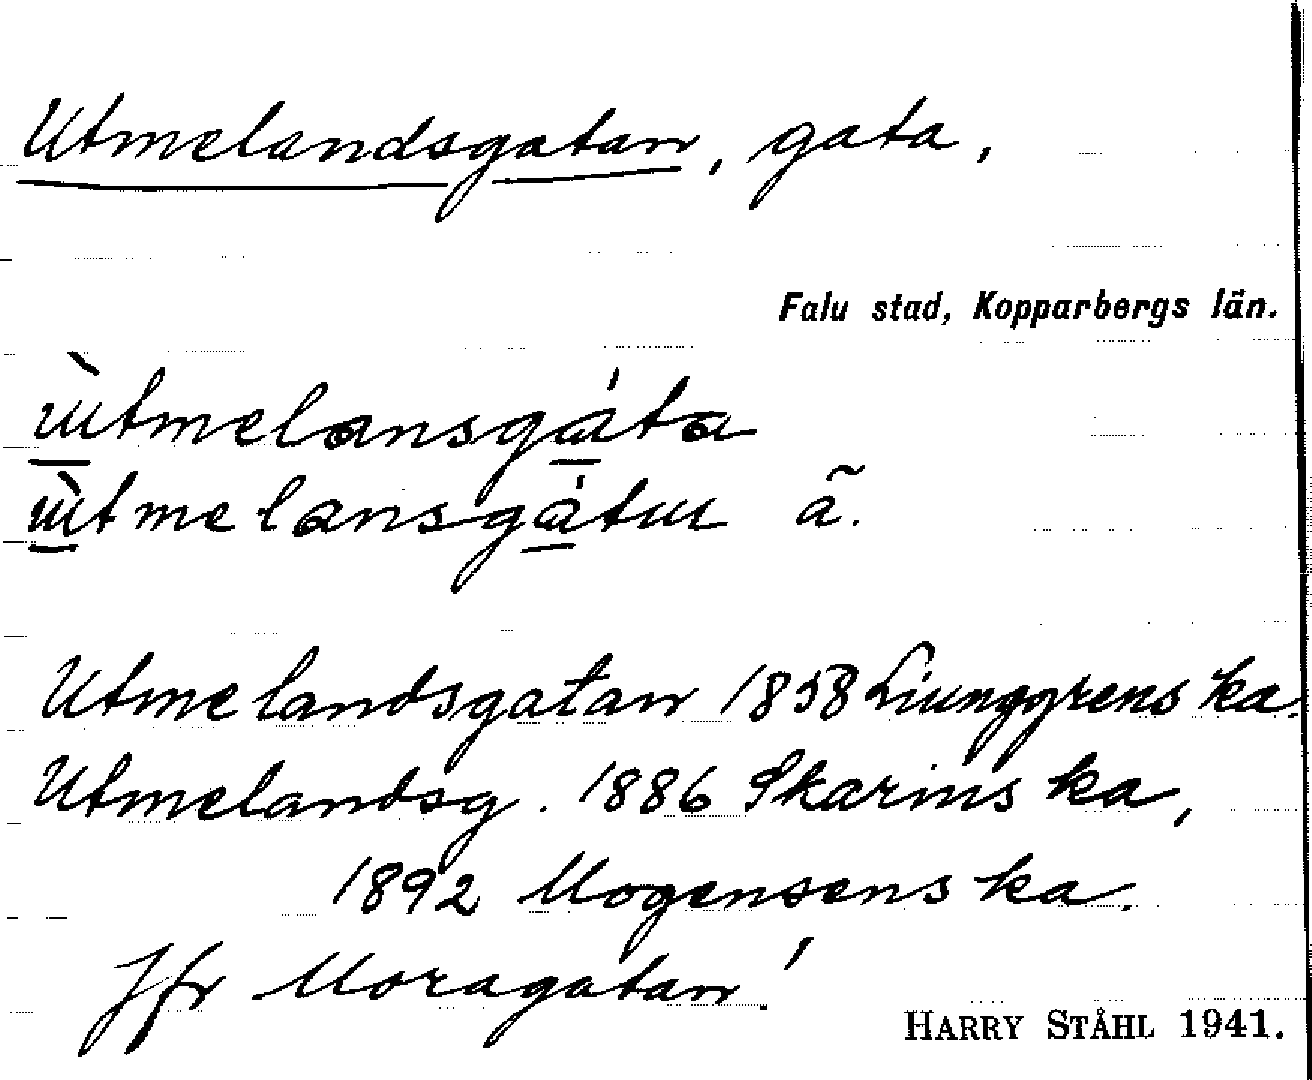 Utmelandsgatan, gata,
Falu stad, Kopparbergs län.
ùtmelansgáta
ùtmelansgátuu ã.
Utmelandsgatan 1858 Liunggrens ka.
Utmelandsg. 1886 Skarins ka,
1892 Mogensens ka.
Jfr Moragatan!
HARRY STÅHL 1941.